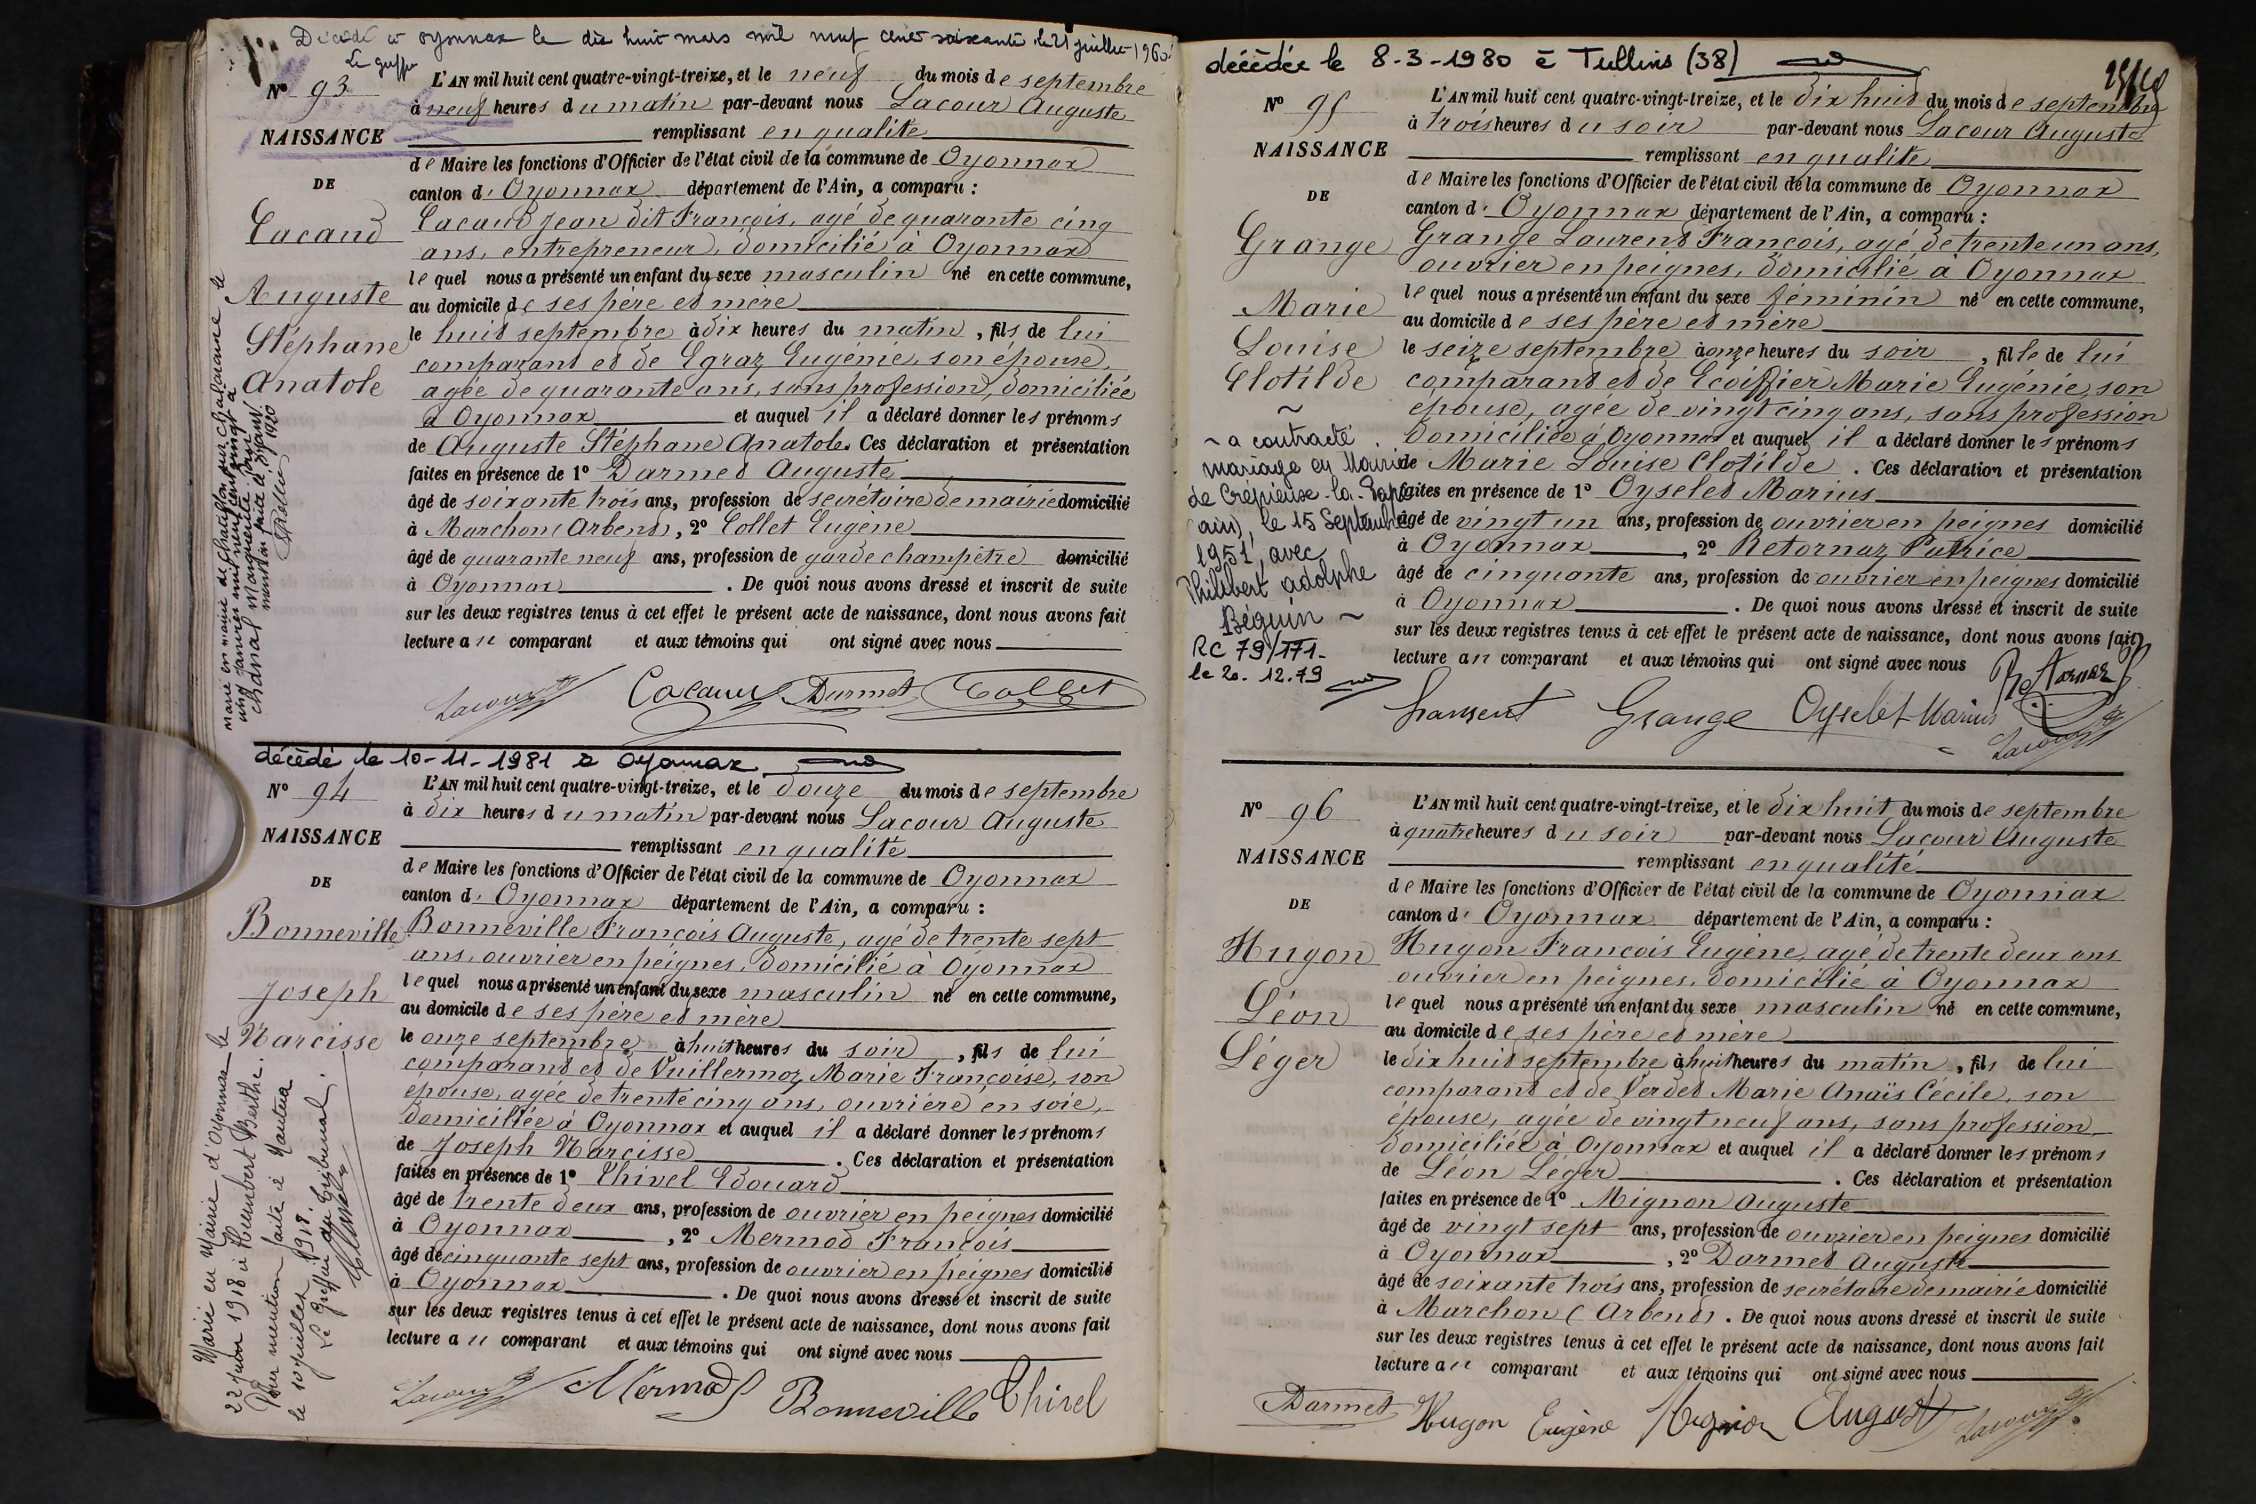 Décédé à Oyonnax le dix huit mars mil neuf cent soixante le 21 juillet 1960
Le greffier
N° 93
NAISSANCE
DE
Cacaud
Auguste
Stéphane
Anatole
L'AN mil huit cent quatre-vingt-treize, et le neuf du mois de septembre
à neuf heures du matin par-devant nous Lacour Auguste
remplissant en qualité
de Maire les fonctions d'Officier de l'état civil de la commune de Oyonnax
canton d' Oyonnax département de l'Ain, a comparu :
Cacaud Jean dit François, agé de quarante cinq
ans, entrepreneur, domicilié à Oyonnax
lequel nous a présenté un enfant du sexe masculin né en cette commune,
au domicile de ses père et mère
le huit septembre à dix heures du matin, fils de lui
comparant et de Egraz Eugénie, son épouse,
agée de quarante ans, sans profession, domiciliée
à Oyonnax et auquel il a déclaré donner les prénoms
de Auguste Stéphane Anatole. Ces déclaration et présentation
faites en présence de 1° Darmet Auguste
âgé de soixante trois ans, profession de secrétaire de mairie domicilié
à Marchon (Arbent), 2° Collet Eugène
âgé de quarante neuf ans, profession de garde champêtre domicilié
à Oyonnax. De quoi nous avons dressé et inscrit de suite
sur les deux registres tenus à cet effet le présent acte de naissance, dont nous avons fait
lecture au comparant et aux témoins qui ont signé avec nous
Marié en mairie de Chatillon sur Chalaronne le
janvier mil neuf cent vingt à
Chanal Marguerite
mention faite le janv. 1920
Lacour Cacaud Darmet Collet
décédé le 10-11-1981 à Oyonnax
N° 94
NAISSANCE
DE
Bonneville
Joseph
Narcisse
L'AN mil huit cent quatre-vingt-treize, et le douze du mois de septembre
à dix heures du matin par-devant nous Lacour Auguste
remplissant en qualité
de Maire les fonctions d'Officier de l'état civil de la commune de Oyonnax
canton d' Oyonnax département de l'Ain, a comparu :
Bonneville François Auguste, agé de trente sept
ans, ouvrier en peignes, domicilié à Oyonnax
lequel nous a présenté un enfant du sexe masculin né en cette commune,
au domicile de ses père et mère
le onze septembre à huit heures du soir, fils de lui
comparant et de Vuillermoz Marie Françoise, son
épouse, agée de trente cinq ans, ouvrière en soie,
domiciliée à Oyonnax et auquel il a déclaré donner les prénoms
de Joseph Narcisse. Ces déclaration et présentation
faites en présence de 1° Thivel Edouard
âgé de trente deux ans, profession de ouvrier en peignes domicilié
à Oyonnax, 2° Mermod François
âgé de cinquante sept ans, profession de ouvrier en peignes domicilié
à Oyonnax. De quoi nous avons dressé et inscrit de suite
sur les deux registres tenus à cet effet le présent acte de naissance, dont nous avons fait
lecture au comparant et aux témoins qui ont signé avec nous
Marié en Mairie d'Oyonnax le
22 juin 1918 à Humbert Berthe.
mention faite à Nantua
le 10 juillet 1918.
Le Greffier du Tribunal.
Lacour Mermod Bonneville Thivel
décédée le 8-3-1980 à Tullins (38)
N° 95
NAISSANCE
DE
Grange
Marie
Louise
Clotilde
L'AN mil huit cent quatre-vingt-treize, et le dix huit du mois de septembre
à trois heures du soir par-devant nous Lacour Auguste
remplissant en qualité
de Maire les fonctions d'Officier de l'état civil de la commune de Oyonnax
canton d' Oyonnax département de l'Ain, a comparu :
Grange Laurent François, agé de trente un ans,
ouvrier en peignes, domicilié à Oyonnax
lequel nous a présenté un enfant du sexe féminin né en cette commune,
au domicile de ses père et mère
le seize septembre à onze heures du soir, fille de lui
comparant et de Ecoiffier Marie Eugénie, son
épouse, agée de vingt cinq ans, sans profession
domiciliée à Oyonnax et auquel il a déclaré donner les prénoms
de Marie Louise Clotilde. Ces déclaration et présentation
faites en présence de 1° Oyselet Marius
âgé de vingt un ans, profession de ouvrier en peignes domicilié
à Oyonnax, 2° Retornaz Patrice
âgé de cinquante ans, profession de ouvrier en peignes domicilié
à Oyonnax. De quoi nous avons dressé et inscrit de suite
sur les deux registres tenus à cet effet le présent acte de naissance, dont nous avons fait
lecture au comparant et aux témoins qui ont signé avec nous
~ a contracté
mariage en Mairie
de Crépieux-la-Pape
(ain), le 15 Septembre
1951, avec
Philibert Adolphe
Béguin ~
RC 79/171-
le 20.12.79
Retornaz
Laurent Grange Oyselet Marius
Lacour
N° 96
NAISSANCE
DE
Hugon
Léon
Léger
L'AN mil huit cent quatre-vingt-treize, et le dix huit du mois de septembre
à quatre heures du soir par-devant nous Lacour Auguste
remplissant en qualité
de Maire les fonctions d'Officier de l'état civil de la commune de Oyonnax
canton d' Oyonnax département de l'Ain, a comparu :
Hugon François Eugène, agé de trente deux ans
ouvrier en peignes, domicilié à Oyonnax
lequel nous a présenté un enfant du sexe masculin né en cette commune,
au domicile de ses père et mère
le dix huit septembre à huit heures du matin, fils de lui
comparant et de Verdet Marie Anaïs Cécile, son
épouse, agée de vingt neuf ans, sans profession
domiciliée à Oyonnax et auquel il a déclaré donner les prénoms
de Léon Léger. Ces déclaration et présentation
faites en présence de 1° Mignon Auguste
âgé de vingt sept ans, profession de ouvrier en peignes domicilié
à Oyonnax, 2° Darmet Auguste
âgé de soixante trois ans, profession de secrétaire de mairie domicilié
à Marchon (Arbent). De quoi nous avons dressé et inscrit de suite
sur les deux registres tenus à cet effet le présent acte de naissance, dont nous avons fait
lecture au comparant et aux témoins qui ont signé avec nous
Darmet Hugon Eugène Mignon August Lacour